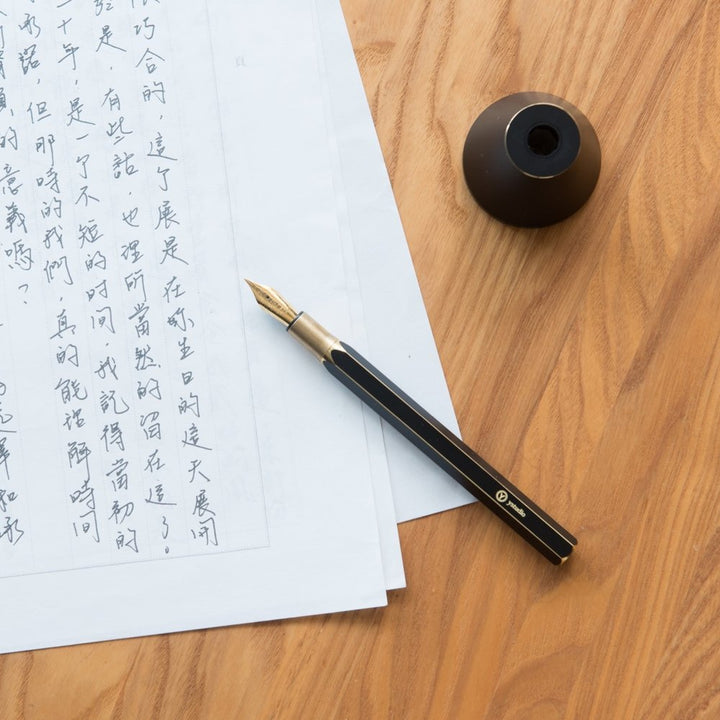 巧合的，這个展是在你生日的這天展開
是，有些話，也理所當然的留在這了。
二十年，是一个不短的时间，我記得當初的
承諾，但那時的我們，真的能解時间
的意義嗎？
和承
ystudio